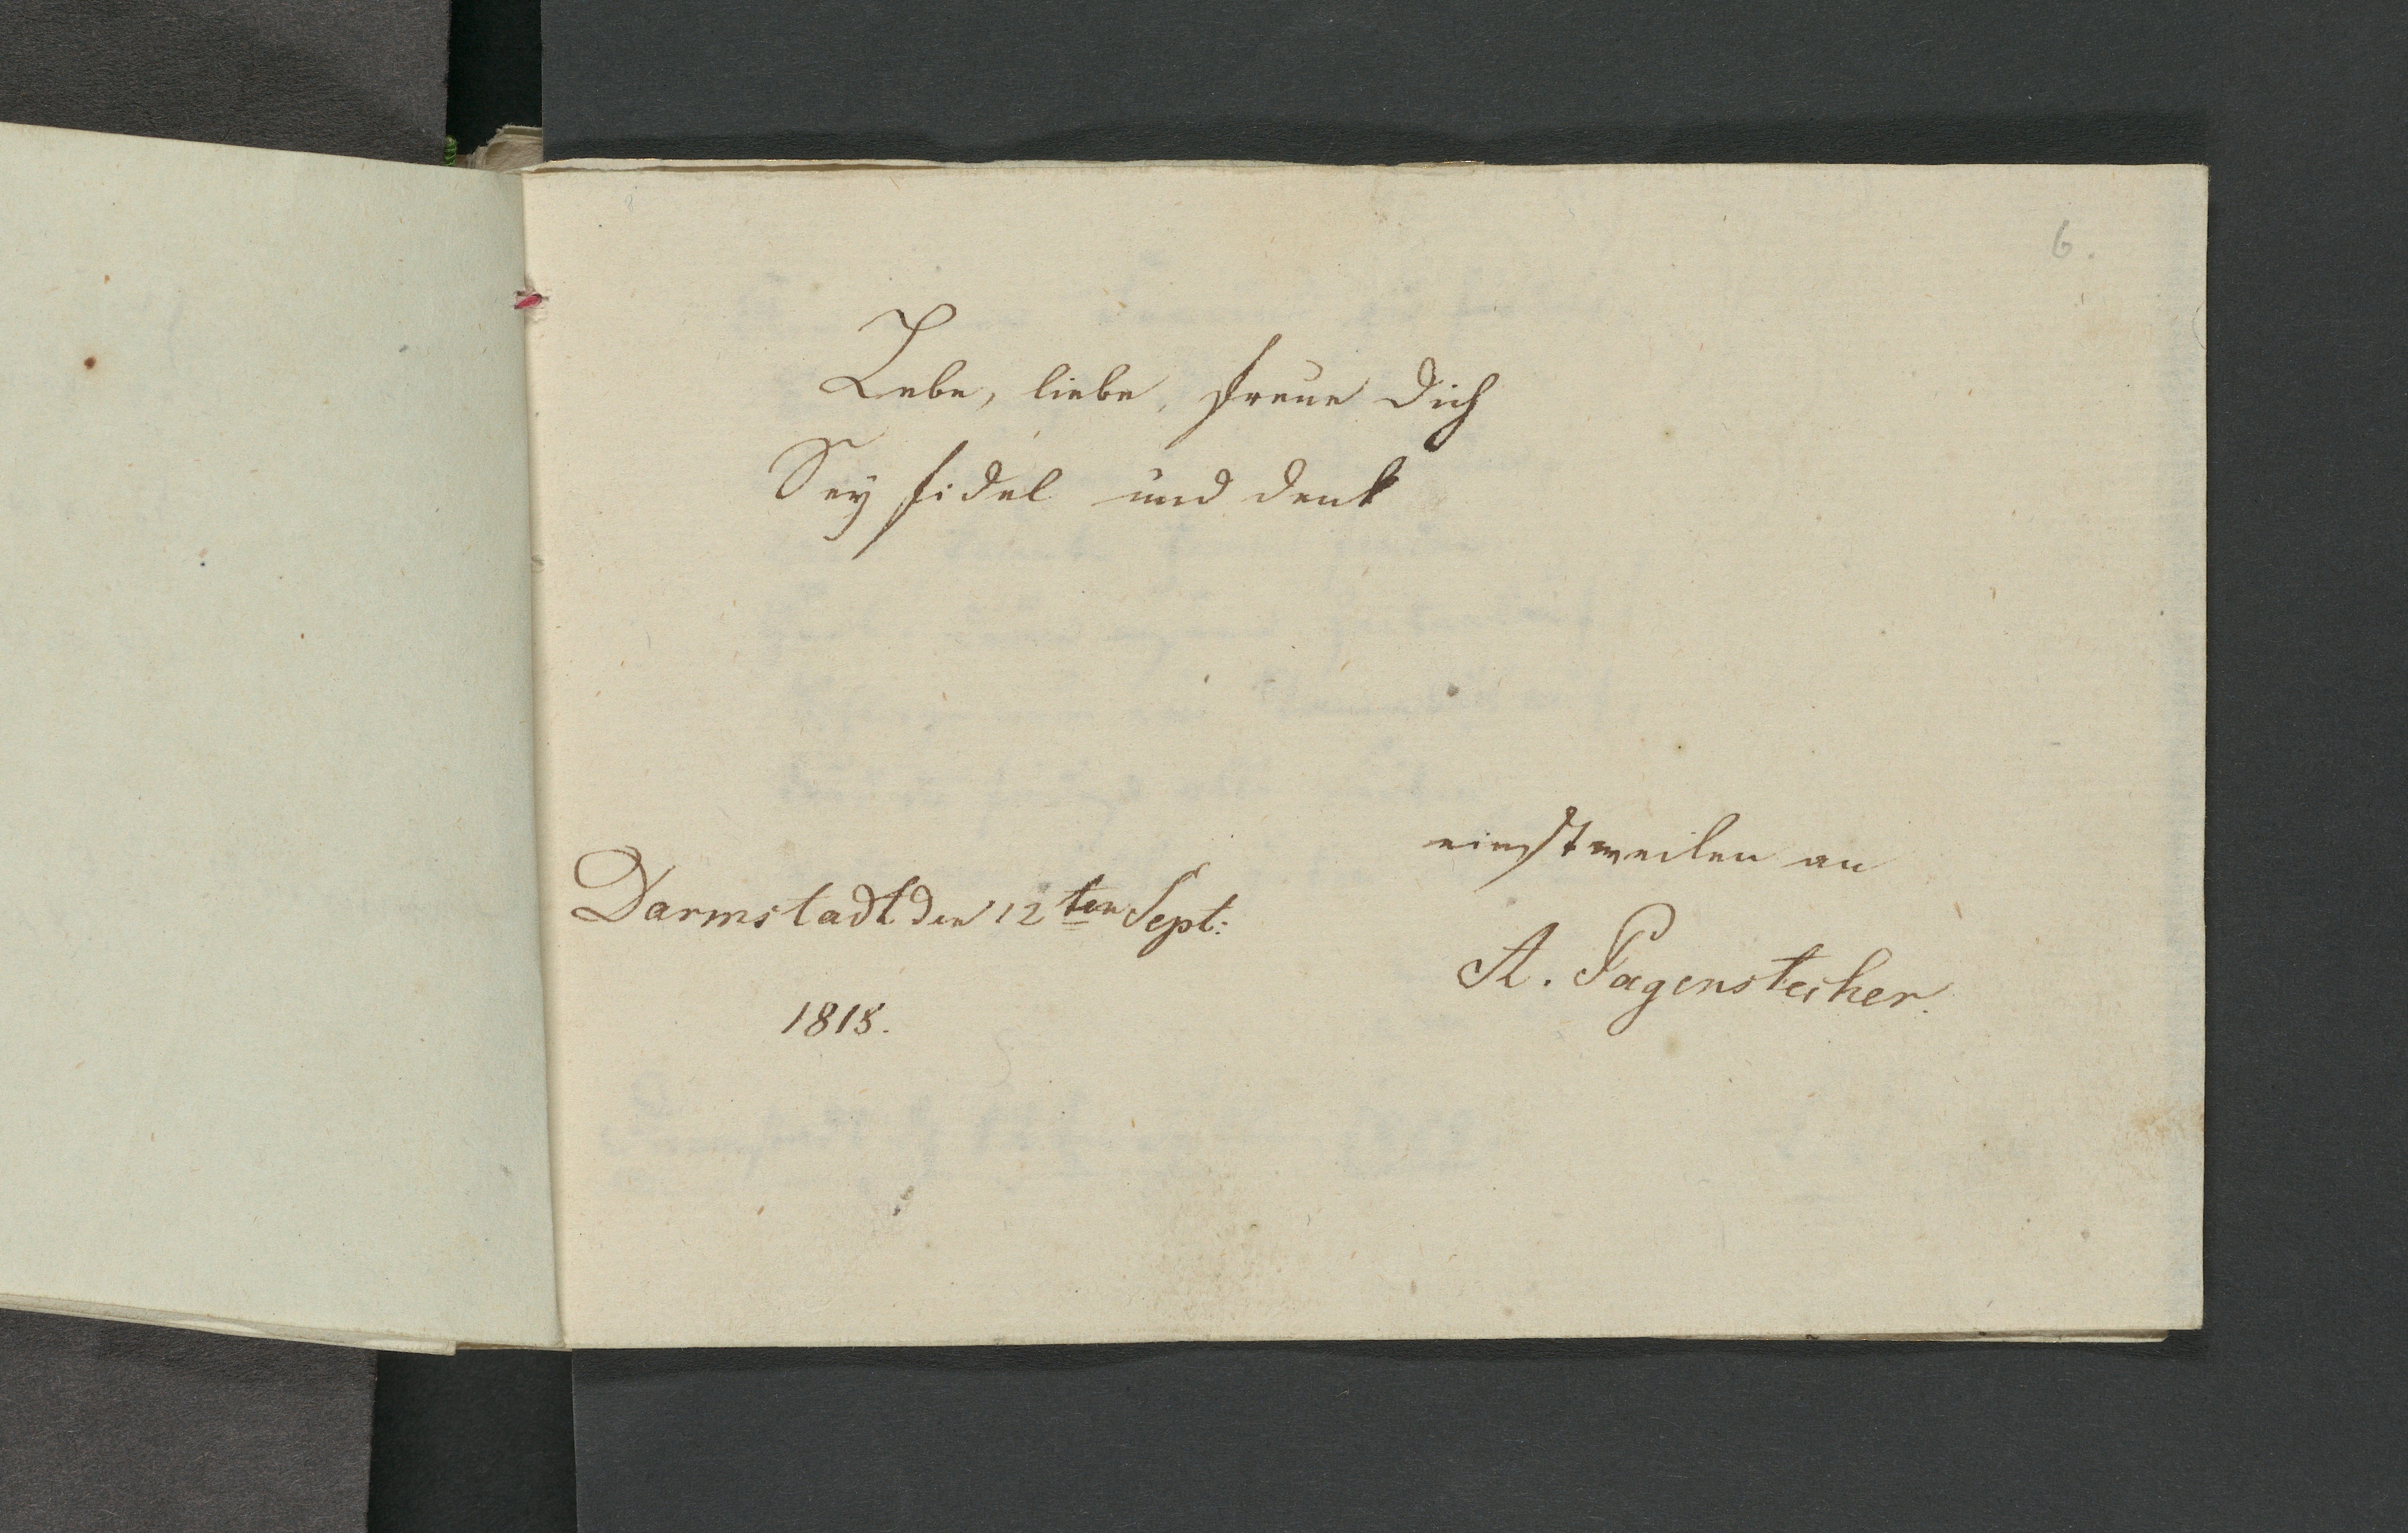 6.
Lebe, liebe, freue Dich
Sey fidel und denk
einstweilen an
Darmstadt den 12ten Sept:
A. Pagenstecher.
1818.